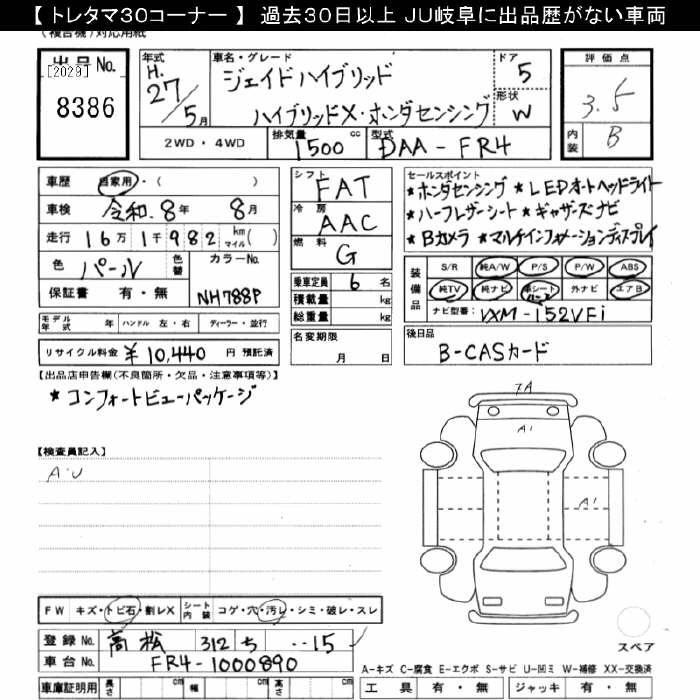 【 トレタマ30コーナー 】 過去30日以上 JU岐阜に出品歴がない車両
(複合機)対応用紙
出品No.
[2029]
8386
年式
H.
27/5月
車名・グレード
ジェイドハイブリッド
ハイブリッドX・ホンダセンシング
ドア
5
形状
W
評価点
3.5
内装
B
2WD・4WD
排気量
1500 cc
型式
DAA-FR4
車歴 自家用・( )
車検 令和.8年 8月
走行 16万1千982 km マイル( )
色 パール 色替 カラーNo.
保証書 有・無 NH788P
シフト FAT
冷房 AAC
燃料 G
乗車定員 6 名
積載量 kg
総重量 kg
セールスポイント
★ホンダセンシング ★LEDオートヘッドライト
★ハーフレザーシート ★ギャザーズナビ
★Bカメラ ★マルチインフォメーションディスプレイ
装備品
S/R 純A/W P/S P/W ABS
純TV 純ナビ 革シート ハーフ 外ナビ エアB
ナビ型番: VXM-152VFi
モデル年式 年 ハンドル 左・右 ディーラー・並行
名変期限
月 日
後日品
B-CASカード
リサイクル料金 ¥10,440 円 預託済
【出品店申告欄(不良箇所・欠品・注意事項等)】
★コンフォートビューパッケージ
【検査員記入】
A・U
7A
A1
A1
FW キズ・トビ石・割レX シート内装 コゲ・穴・汚レ・シミ・破レ・スレ
登録No. 高松 312 ち ‥15
車台No. FR4-1000890
車庫証明用 長さ cm 幅 cm 高さ cm
スペア
A-キズ C-腐食 E-エクボ S-サビ U-凹ミ W-補修 XX-交換済
工具 有・無 ジャッキ 有・無